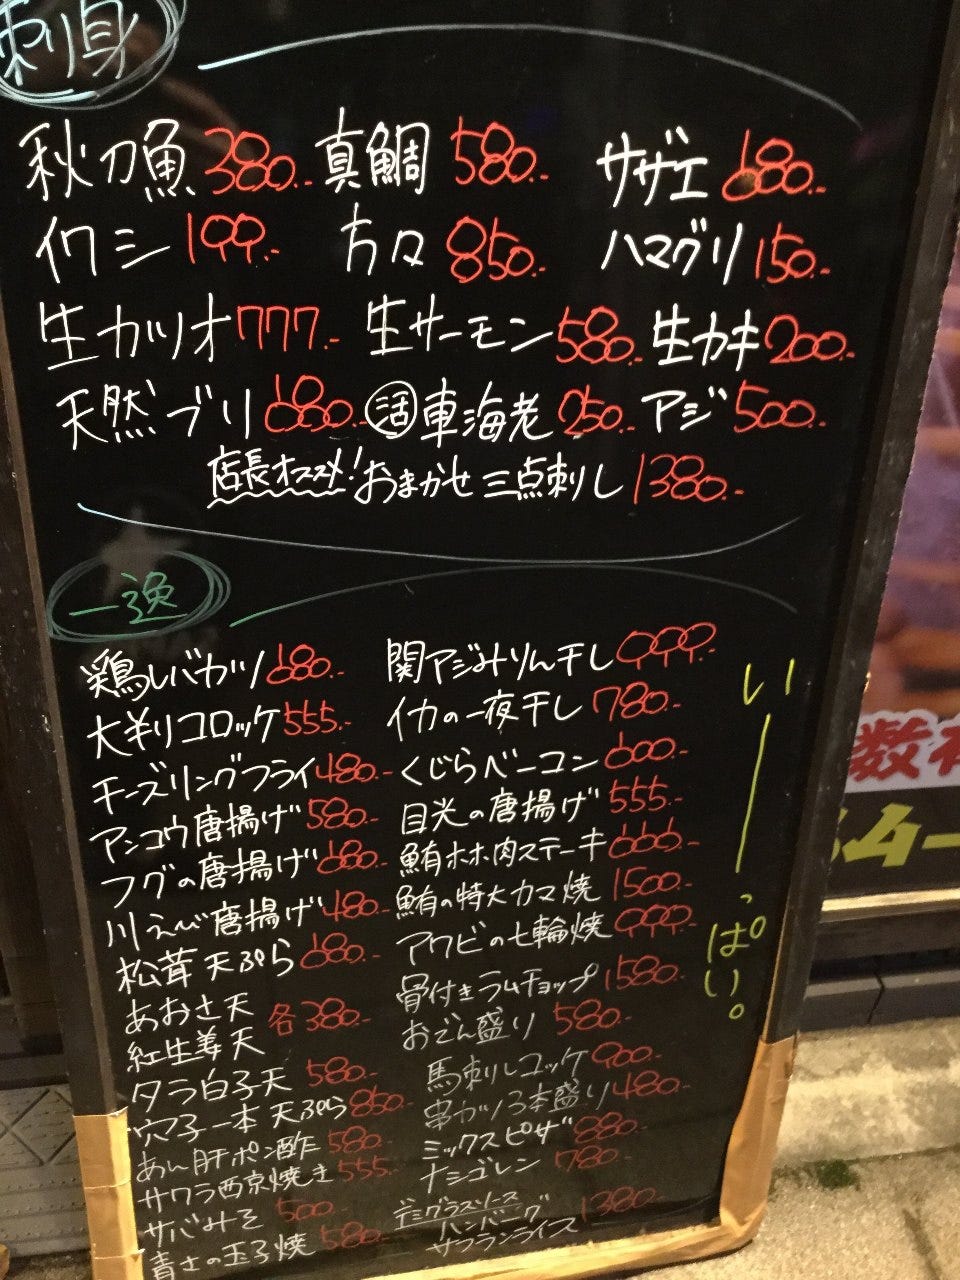 刺身
秋刀魚 380.- 真鯛 580.- サザエ 680.-
イワシ 199.- 方々 850.- ハマグリ 150.-
生カツオ 777.- 生サーモン 580.- 生カキ 200.-
天然ブリ 680.- 活車海老 250.- アジ 500.-
店長オススメ!おまかせ三点刺し 1380.-
一逸
鶏レバカツ 680.-
大判コロッケ 555.-
チーズリングフライ 480.-
アンコウ唐揚げ 580.-
フグの唐揚げ 680.-
川えび唐揚げ 480.-
松茸天ぷら 680.-
あおさ天
紅生姜天 各380.-
タラ白子天 580.-
穴子一本天ぷら 850.-
あん肝ポン酢 580.-
サワラ西京焼き 555.-
サバみそ 500.-
青さの玉子焼 580.-
関アジみりん干し 999.-
イカの一夜干し 780.-
くじらベーコン 600.-
目光の唐揚げ 555.-
鮪ホホ肉ステーキ 666.-
鮪の特大カマ焼 1500.-
アワビの七輪焼 999.-
骨付きラムチョップ 1580.-
おでん盛り 580.-
馬刺しユッケ 900.-
串カツ3本盛り 480.-
ミックスピザ 880.-
ナシゴレン 780.-
デミグラスソース
ハンバーグ 1380.-
サフランライス
いーっぱい。
数
ムー